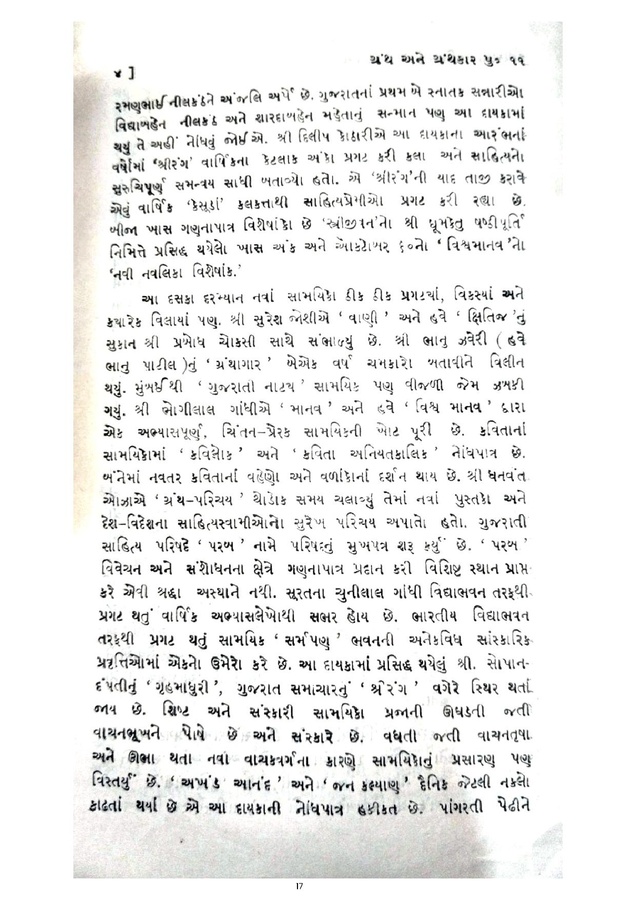 ગ્રંથ અને ગ્રંથકાર પુ૦ ૧૧
૪ ]
રમણભાઈ નીલકંઠને અંજલિ અર્પે છે. ગુજરાતનાં પ્રથમ બે સ્નાતક સન્નારીઓ
વિદ્યાબહેન નીલકંઠ અને શારદાબહેન મહેતાનું સન્માન પણ આ દાયકામાં
થયું તે અહીં નોંધવું જોઈએ. શ્રી દિલીપ કોઠારીએ આ દાયકાના આરંભનાં
વર્ષોમાં ‘શ્રીરંગ’ વાર્ષિકના કેટલાક અંકો પ્રગટ કરી કલા અને સાહિત્યનો
સુરુચિપૂર્ણ સમન્વય સાધી બતાવ્યો હતો. એ ‘શ્રીરંગ’ની યાદ તાજી કરાવે
એવું વાર્ષિક ‘કેસૂડાં’ કલકત્તાથી સાહિત્યપ્રેમીઓ પ્રગટ કરી રહ્યા છે.
બીજા ખાસ ગણનાપાત્ર વિશેષાંકો છે ‘સ્ત્રીજીવન’નો શ્રી ધૂમકેતુ ષષ્ઠીપૂર્તિ
નિમિત્તે પ્રસિદ્ધ થયેલો ખાસ અંક અને ઑક્ટોબર ૬૦નો ‘વિશ્વમાનવ’નો
‘નવી નવલિકા વિશેષાંક.’
આ દસકા દરમ્યાન નવાં સામયિકો ઠીક ઠીક પ્રગટ્યાં, વિકસ્યાં અને
ક્યારેક વિલાયાં પણ. શ્રી સુરેશ જોશીએ ‘વાણી’ અને હવે ‘ક્ષિતિજ’નું
સુકાન શ્રી પ્રબોધ ચોકસી સાથે સંભાળ્યું છે. શ્રી ભાનુ ઝવેરી ( હવે
ભાનુ પાટીલ )નું ‘ગ્રંથાગાર’ બેએક વર્ષ ચમકારો બતાવીને વિલીન
થયું. મુંબઈથી ‘ગુજરાતી નાટ્ય’ સામયિક પણ વીજળી જેમ ઝબકી
ગયું. શ્રી ભોગીલાલ ગાંધીએ ‘માનવ’ અને હવે ‘વિશ્વ માનવ’ દ્વારા
એક અભ્યાસપૂર્ણ, ચિંતન–પ્રેરક સામયિકની ખોટ પૂરી છે. કવિતાનાં
સામયિકોમાં ‘કવિલોક’ અને ‘કવિતા અનિયતકાલિક’ નોંધપાત્ર છે.
બંનેમાં નવતર કવિતાનાં વહેણો અને વળાંકોનાં દર્શન થાય છે. શ્રી ધનવંત
ઓઝાએ ‘ગ્રંથ–પરિચય’ થોડોક સમય ચલાવ્યું તેમાં નવાં પુસ્તકો અને
દેશ–વિદેશના સાહિત્યસ્વામીઓનો સુરેખ પરિચય અપાતો હતો. ગુજરાતી
સાહિત્ય પરિષદે ‘પરબ’ નામે પરિષદનું મુખપત્ર શરૂ કર્યું છે. ‘પરબ’
વિવેચન અને સંશોધનના ક્ષેત્રે ગણનાપાત્ર પ્રદાન કરી વિશિષ્ટ સ્થાન પ્રાપ્ત
કરે એવી શ્રદ્ધા અસ્થાને નથી. સૂરતના ચુનીલાલ ગાંધી વિદ્યાભવન તરફથી
પ્રગટ થતું વાર્ષિક અભ્યાસલેખોથી સભર હોય છે. ભારતીય વિદ્યાભવન
તરફથી પ્રગટ થતું સામયિક ‘સમર્પણ’ ભવનની અનેકવિધ સાંસ્કારિક
પ્રવૃત્તિઓમાં એકનો ઉમેરો કરે છે. આ દાયકામાં પ્રસિદ્ધ થયેલું શ્રી. સોપાન-
દંપતીનું ‘ગૃહમાધુરી’, ગુજરાત સમાચારનું ‘શ્રીરંગ’ વગેરે સ્થિર થતાં
જાય છે. શિષ્ટ અને સંસ્કારી સામયિકો પ્રજાની ઊઘડતી જતી
વાચનભૂખને પોષે છે અને સંસ્કારે છે. વધતી જતી વાચનતૃષા
અને ઊભા થતા નવા વાચકવર્ગના કારણે સામયિકોનું પ્રસારણ પણ
વિસ્તર્યું છે. ‘અખંડ આનંદ’ અને ‘જન કલ્યાણ’ દૈનિક જેટલી નકલો
કાઢતાં થયાં છે એ આ દાયકાની નોંધપાત્ર હકીકત છે. પાંગરતી પેઢીને
17